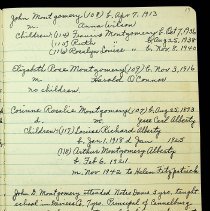 John Montgomery (109) b. Apr 7, 1913
m. Anna Wilson
Children: (114) Francis Montgomery b. Oct 7, 1936
(115) Ruth " b. Aug 25, 1938
(116) Rosalyn Louise " b. Nov 8, 1940
Elizabeth Rose Montgomery (110) b. Nov 3, 1916
m. Harold O'Connor
no children.
Corinne Rosalie Montgomery (107) b. Aug 25, 1893
d. m. Jess Carl Alberty
Children: (117) Louise Richard Alberty
b. Jan 1, 1918 d. June 1, 1925
(118) Arthur Montgomery Alberty
b. Feb 6, 1921
m. Nov 1942 to Helen Fitzpatrick
John G. Montgomery attended Notre Dame 2 yrs, taught
school in 2 yrs, Principal of Canelburg